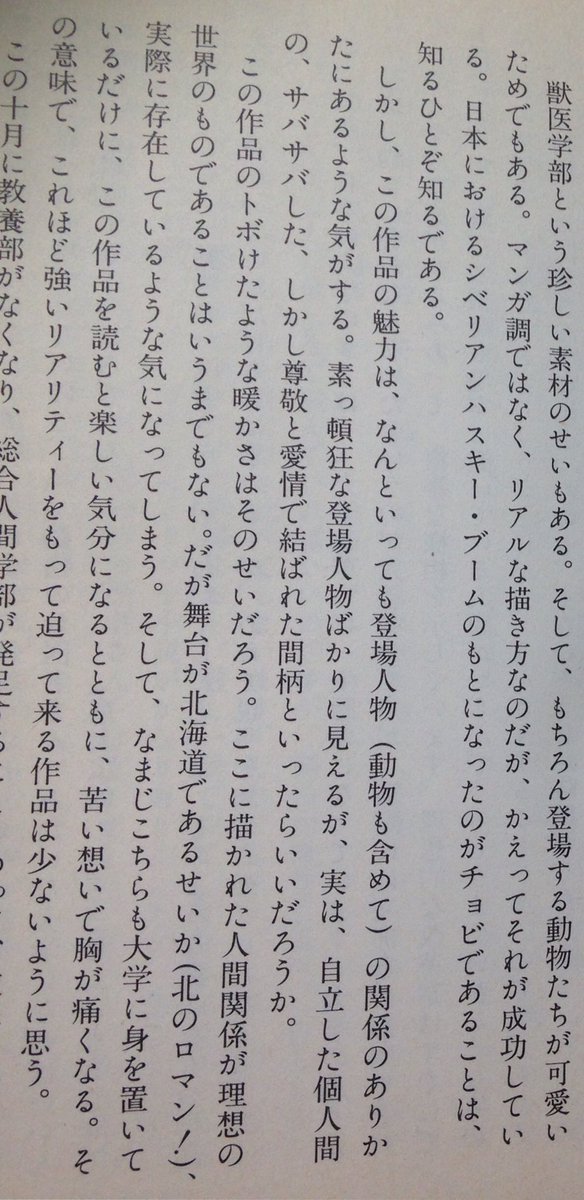 獣医学部という珍しい素材のせいもある。そして、もちろん登場する動物たちが可愛い
ためでもある。マンガ調ではなく、リアルな描き方なのだが、かえってそれが成功してい
る。日本におけるシベリアンハスキー・ブームのもとになったのがチョビであることは、
知るひとぞ知るである。
しかし、この作品の魅力は、なんといっても登場人物（動物も含めて）の関係のありか
たにあるような気がする。素っ頓狂な登場人物ばかりに見えるが、実は、自立した個人間
の、サバサバした、しかし尊敬と愛情で結ばれた間柄といったらいいだろうか。
この作品のトボけたような暖かさはそのせいだろう。ここに描かれた人間関係が理想の
世界のものであることはいうまでもない。だが舞台が北海道であるせいか（北のロマン！）、
実際に存在しているような気になってしまう。そして、なまじこちらも大学に身を置いて
いるだけに、この作品を読むと楽しい気分になるとともに、苦い想いで胸が痛くなる。そ
の意味で、これほど強いリアリティーをもって迫って来る作品は少ないように思う。
この十月に教養部がなくなり、総合人間学部が発足する